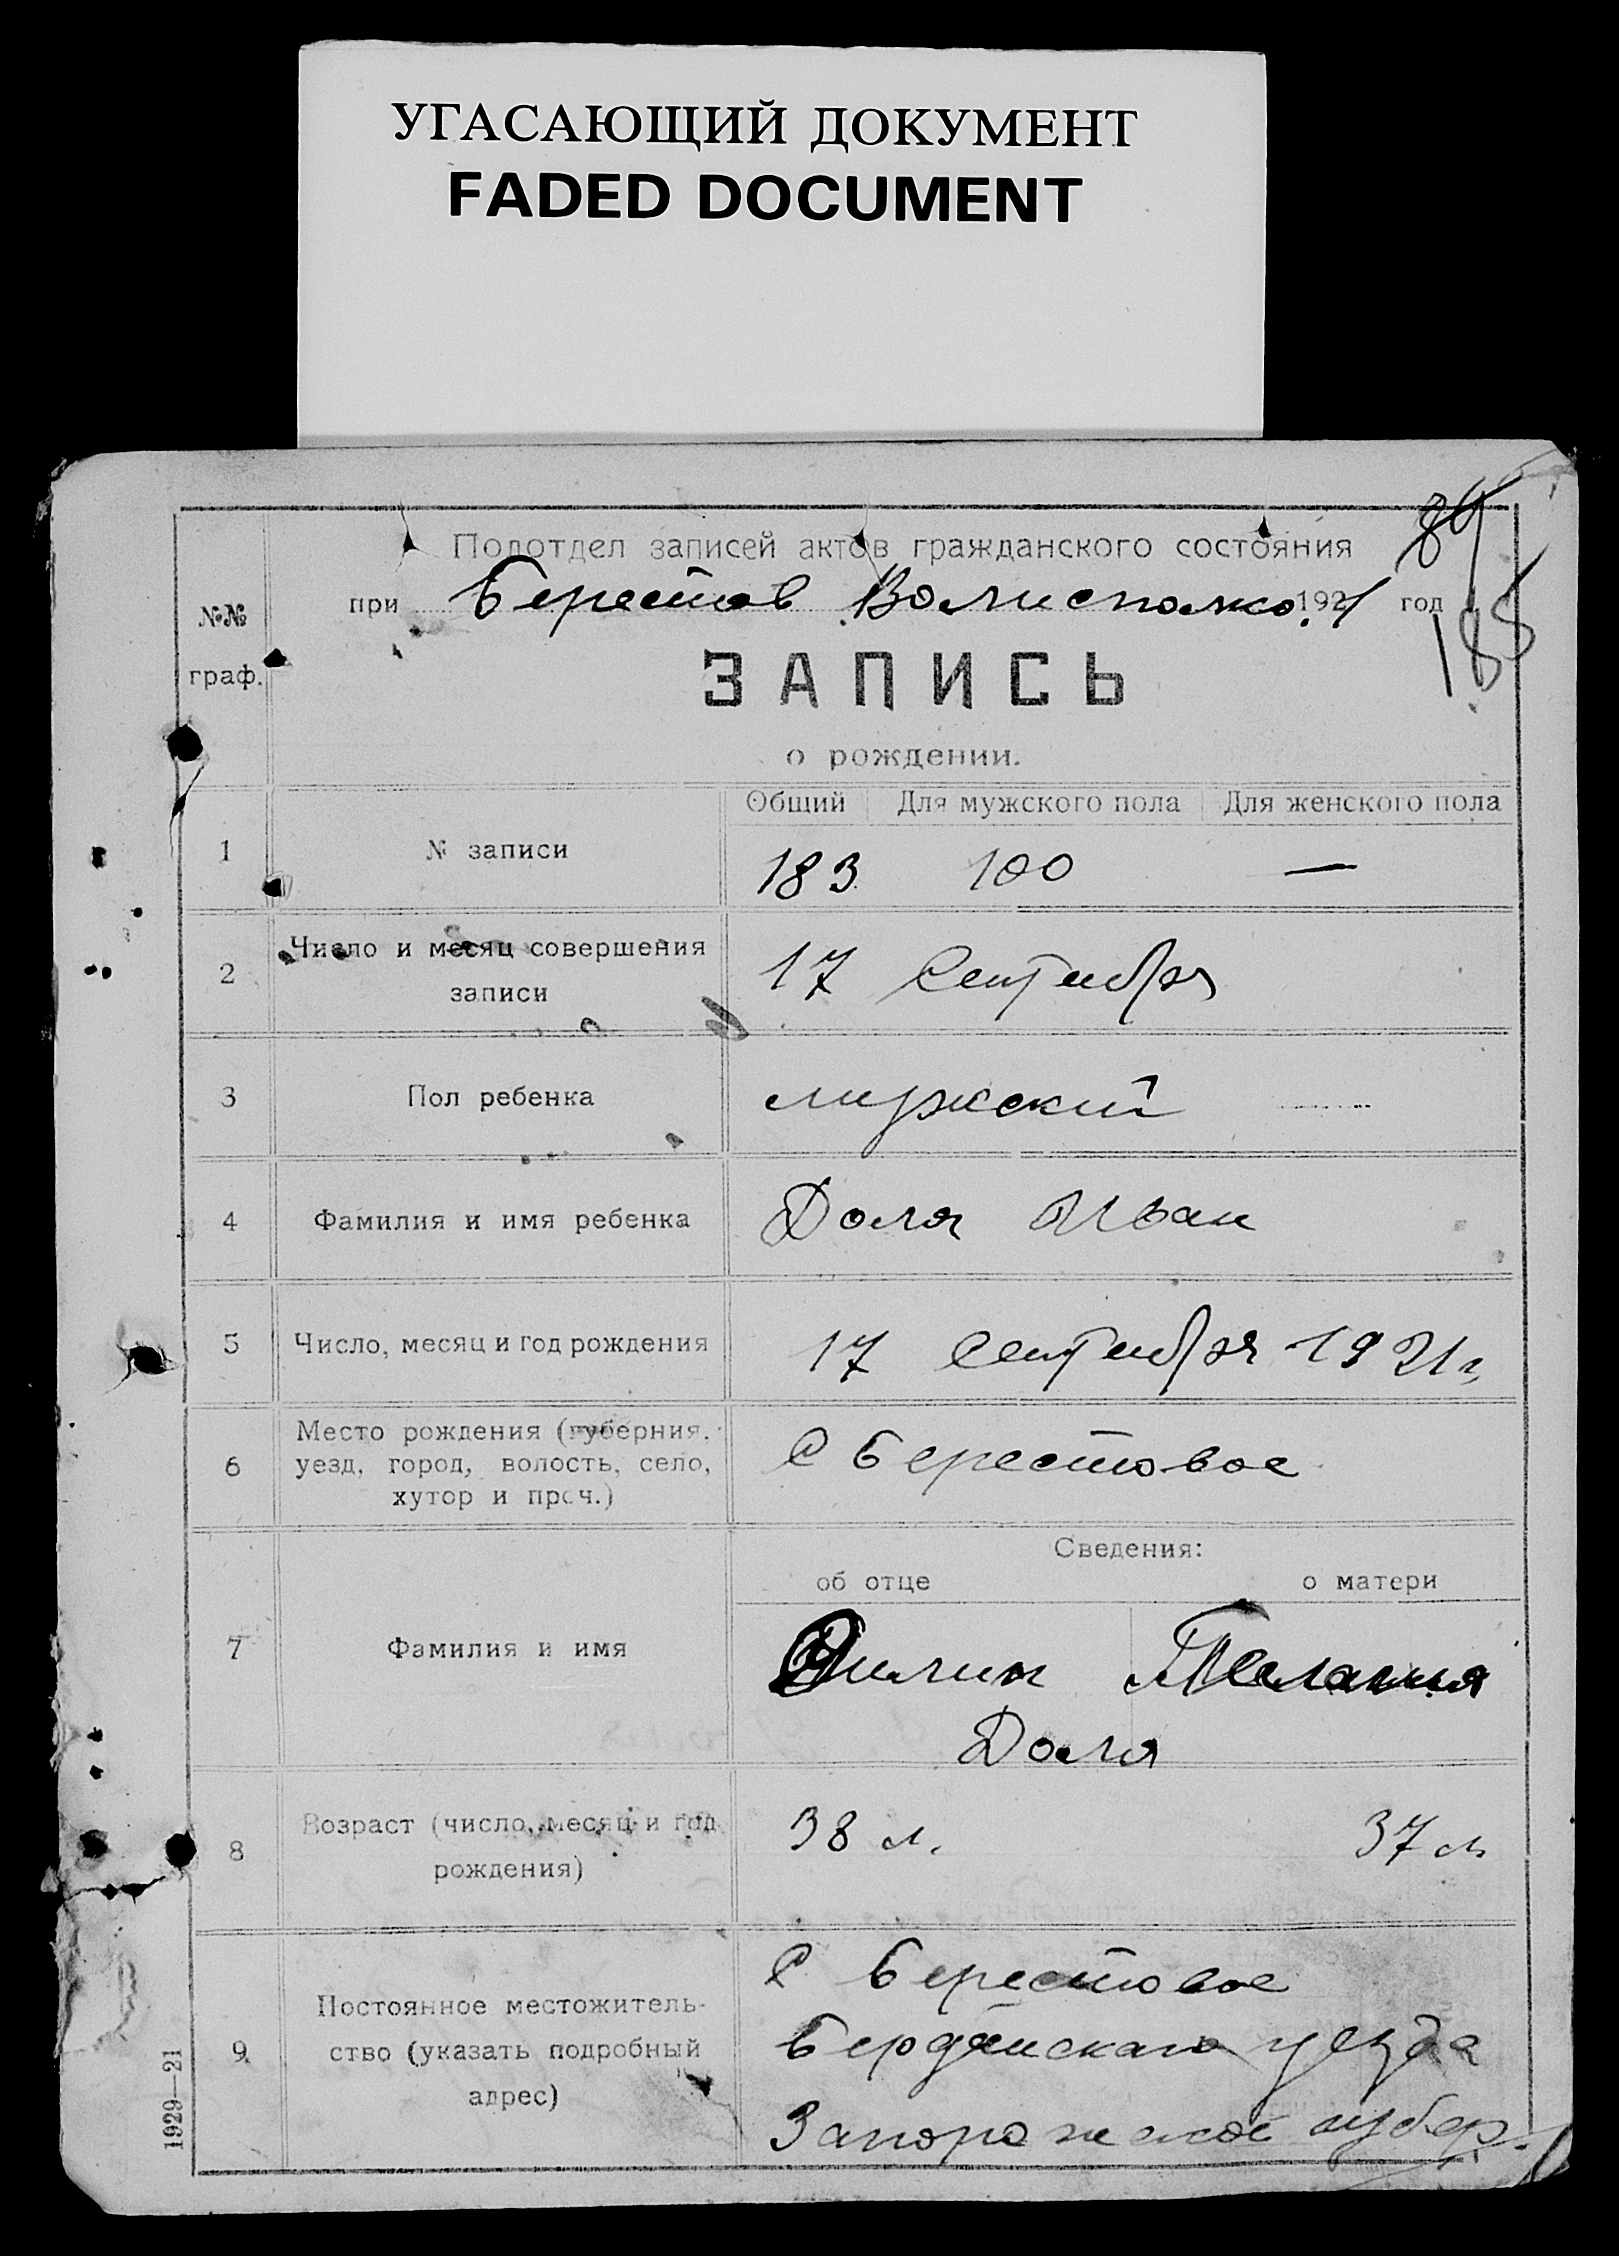 УГАСАЮЩИЙ ДОКУМЕНТ
FADED DOCUMENT
Подотдел записей актов гражданского состояния
при Берестов. Волисполко. 1921 год
188
№№ граф.
ЗАПИСЬ
о рождении.
Общий Для мужского пола Для женского пола
1 № записи 183 100 —
2 Число и месяц совершения записи 17 Сентября
3 Пол ребенка мужский
4 Фамилия и имя ребенка Доля Иван
5 Число, месяц и год рождения 17 Сентября 1921 г.
6 Место рождения (губерния, уезд, город, волость, село, хутор и проч.) С Берестовое
Сведения:
об отце о матери
7 Фамилия и имя Филип Пелагия
Доля
8 Возраст (число, месяц и год рождения) 38 л. 37 л.
9. Постоянное местожительство (указать подробный адрес) С Берестовое
Бердянскаго уезда
Запорожской губер.
1929—21